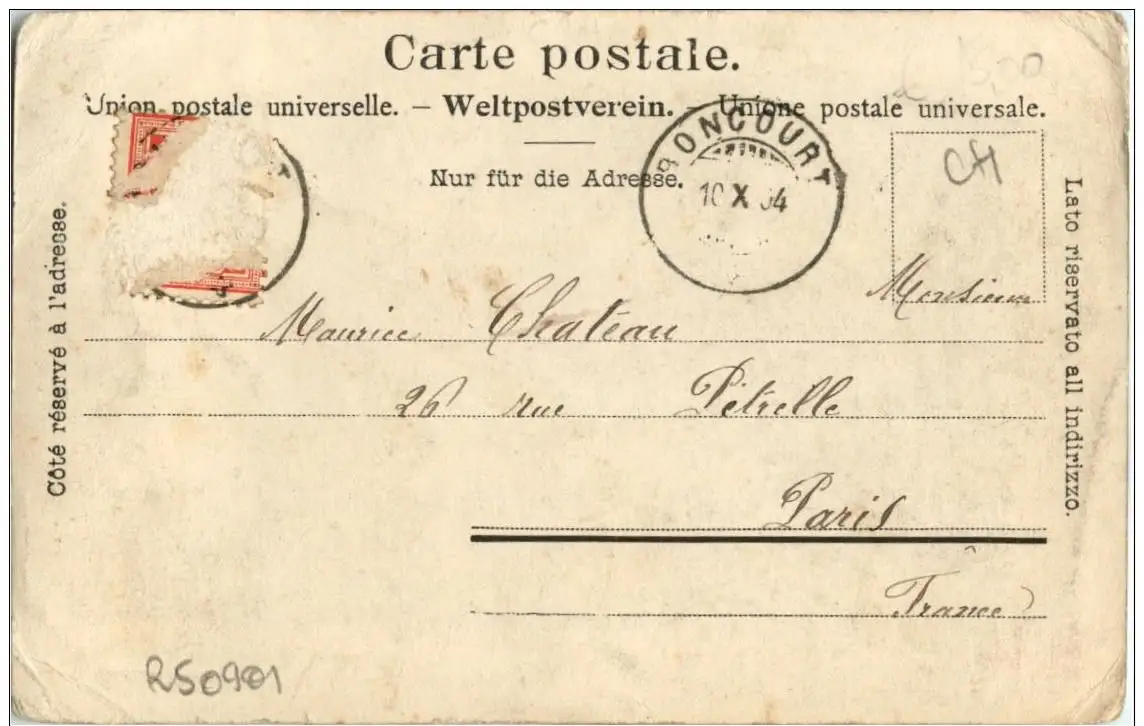 Carte postale.
Union postale universelle. – Weltpostverein. – Unione postale universale.
Nur für die Adresse.
Côté réservé à l'adresse.
Lato riservato all indirizzo.
BONCOURT
10 X 04
Monsieur
Maurice Chateau
26 rue Pétrelle
Paris
France
R50901